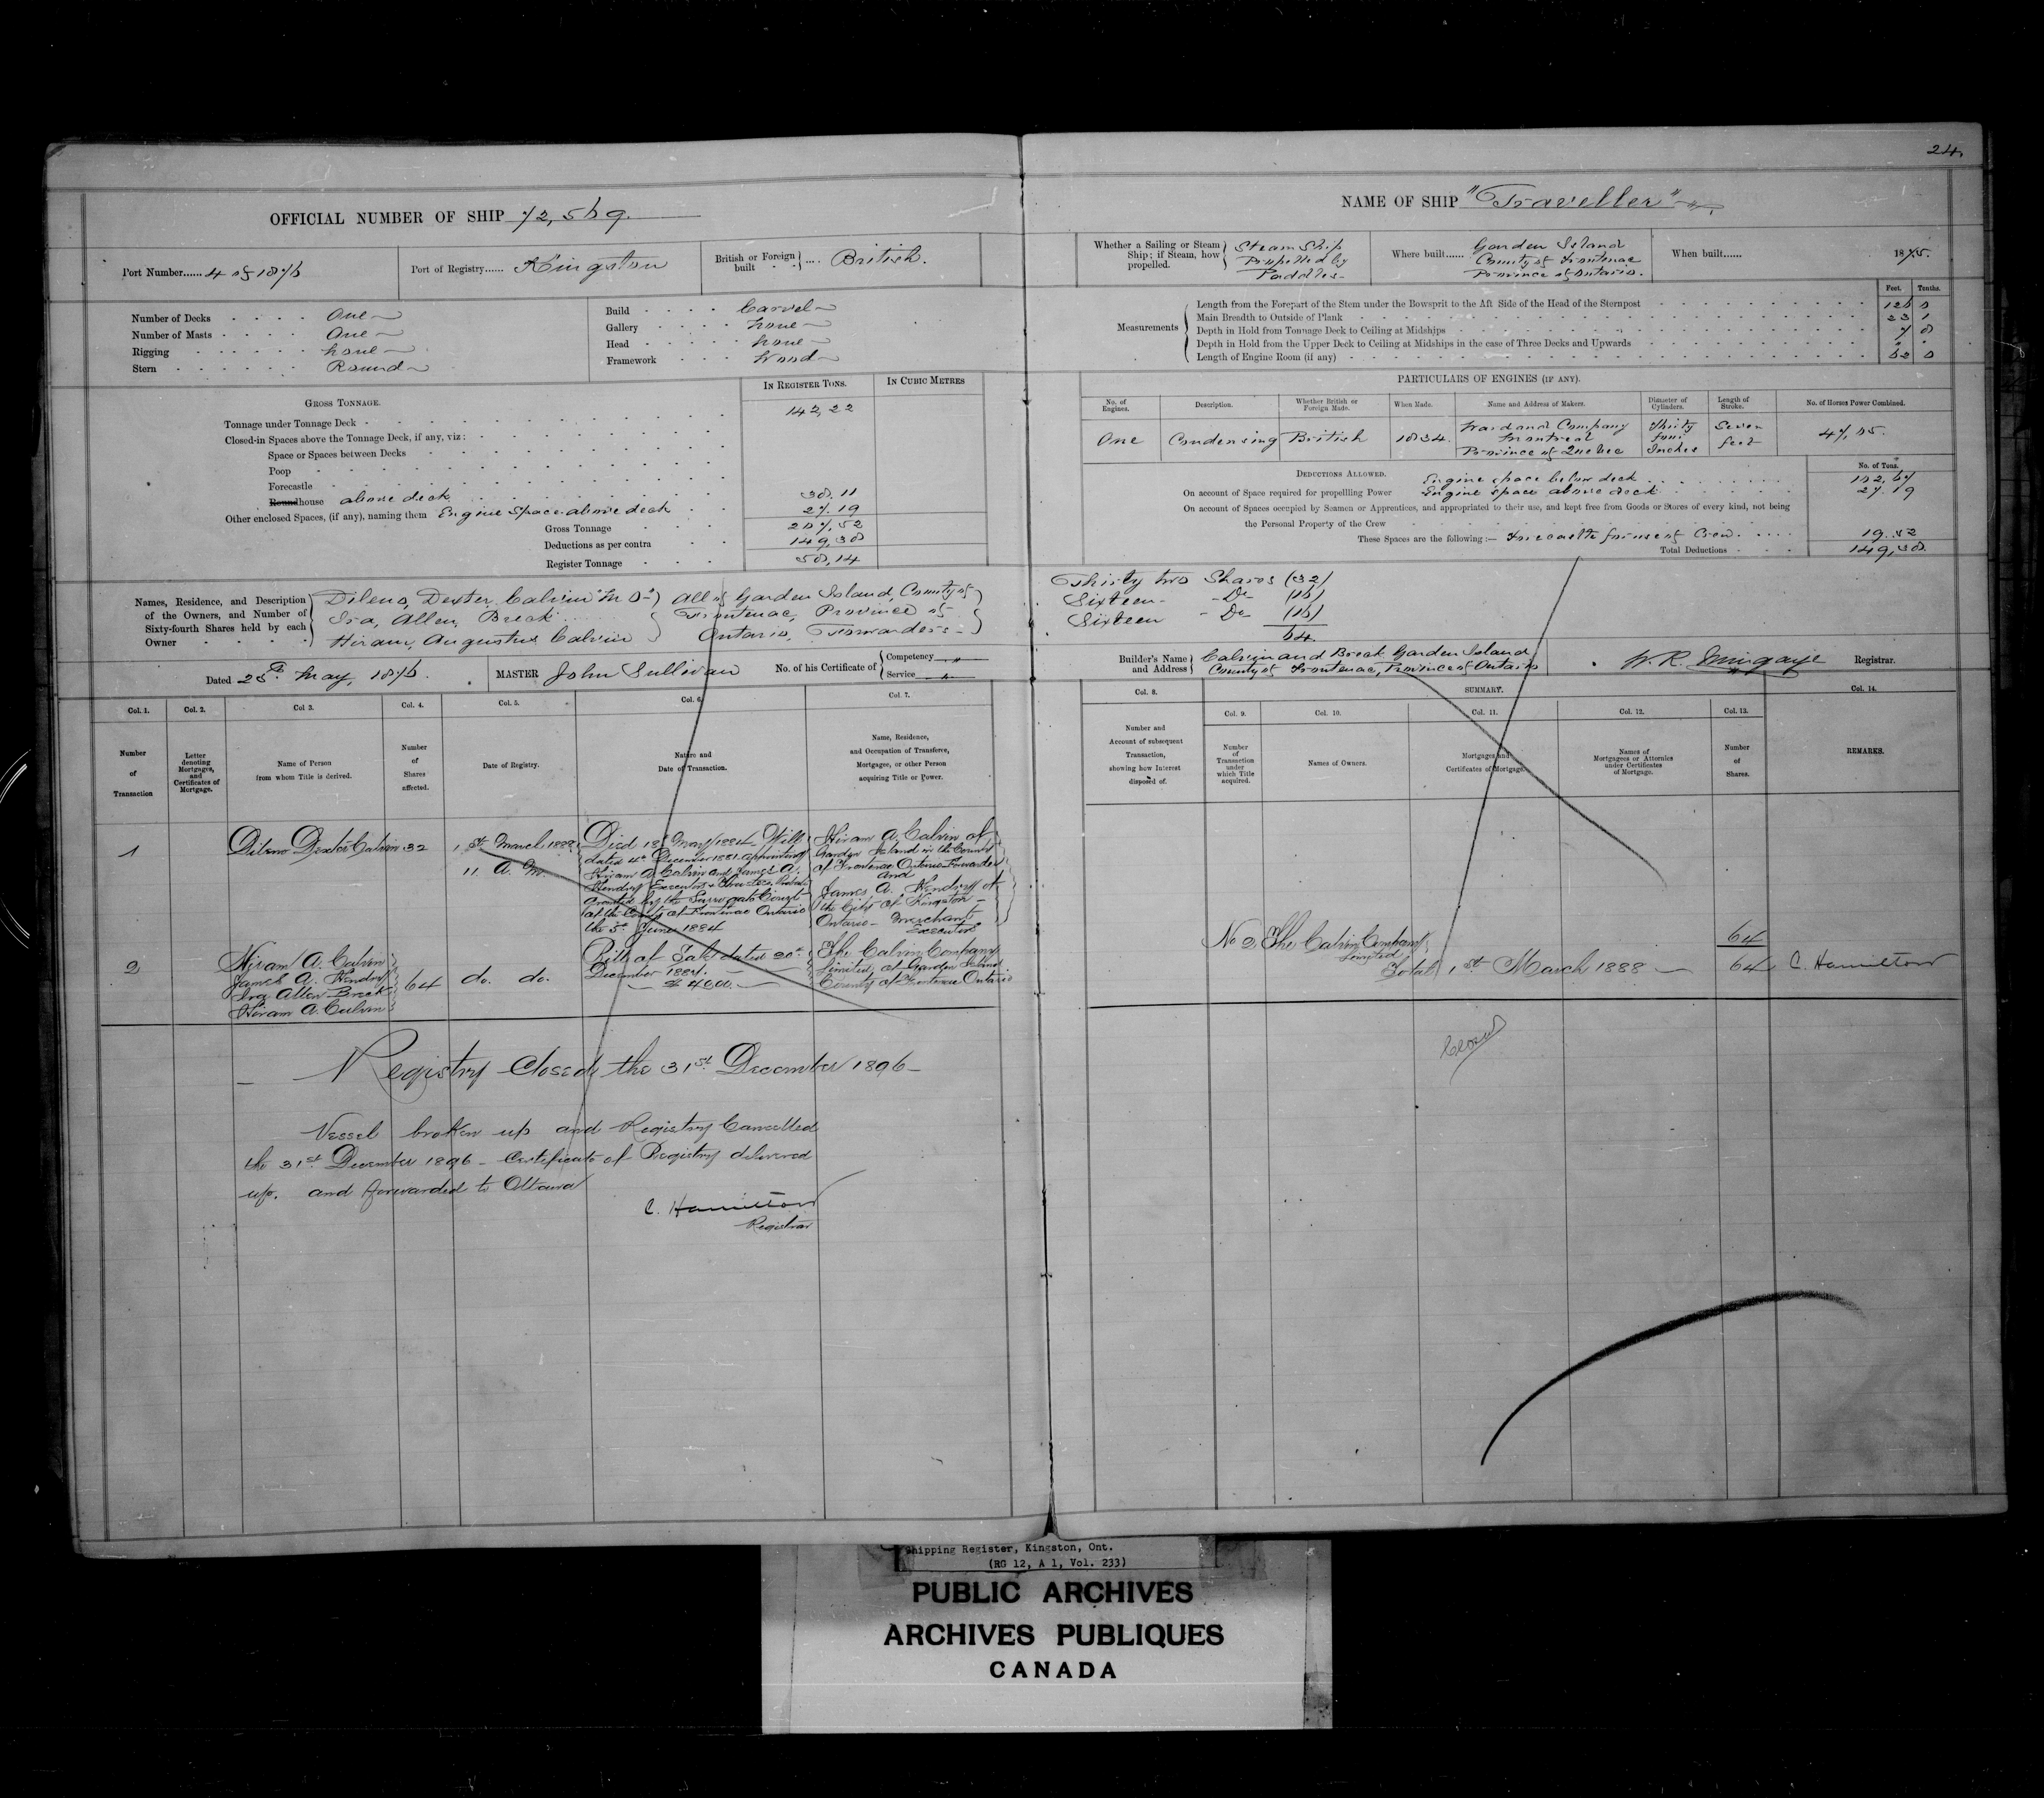 24.
OFFICIAL NUMBER OF SHIP 72,569.
NAME OF SHIP "Traveller"
Port Number...... 4 of 1876
Port of Registry...... Kingston
British or Foreign built .... British.
Whether a Sailing or Steam Ship; if Steam, how propelled. Steam Ship Propelled by Paddles
Where built...... Garden Island County of Frontenac Province of Ontario.
When built...... 1875.
Number of Decks One
Number of Masts One
Rigging none
Stern Round
Build Carvel
Gallery none
Head none
Framework Wood
Feet. Tenths.
Measurements
Length from the Forepart of the Stem under the Bowsprit to the Aft Side of the Head of the Sternpost 126 8
Main Breadth to Outside of Plank 23 1
Depth in Hold from Tonnage Deck to Ceiling at Midships 7 8
Depth in Hold from the Upper Deck to Ceiling at Midships in the case of Three Decks and Upwards " "
Length of Engine Room (if any) 62 8
GROSS TONNAGE.
IN REGISTER TONS.
IN CUBIC METRES
Tonnage under Tonnage Deck 142,22
Closed-in Spaces above the Tonnage Deck, if any, viz:
Space or Spaces between Decks
Poop
Forecastle
Roundhouse above deck 38.11
Other enclosed Spaces, (if any), naming them Engine Space above deck 27.19
Gross Tonnage 207,52
Deductions as per contra 149,38
Register Tonnage 58,14
PARTICULARS OF ENGINES (IF ANY).
No. of Engines.
Description.
Whether British or Foreign Made.
When Made.
Name and Address of Makers.
Diameter of Cylinders.
Length of Stroke.
No. of Horses Power Combined.
One
Condensing
British
1834.
Ward and Company Montreal Province of Quebec
Thirty four Inches
Seven feet
47,85.
DEDUCTIONS ALLOWED.
No. of Tons.
Engine space below deck 102,67
On account of Space required for propelling Power Engine space above deck 27.19
On account of Spaces occupied by Seamen or Apprentices, and appropriated to their use, and kept free from Goods or Stores of every kind, not being
the Personal Property of the Crew
These Spaces are the following:— Forecastle for use of Crew. 19.52
Total Deductions 149,38
Names, Residence, and Description of the Owners, and Number of Sixty-fourth Shares held by each Owner
Dileno, Dexter Calvin
Ira, Allen, Breck
Hiram, Augustus Calvin
All of Garden Island, County of
Frontenac, Province of
Ontario, Forwarders
Thirty two Shares (32)
Sixteen - Do (16)
Sixteen - Do (16)
64.
Dated 25th May, 1876.
MASTER John Sullivan
No. of his Certificate of Competency Service
Builder's Name and Address Calvin and Breck Garden Island County of Frontenac, Province of Ontario
W. R. Mingaye Registrar.
Col. 1.
Number of Transaction
Col. 2.
Letter denoting Mortgages, and Certificates of Mortgage.
Col 3.
Name of Person from whom Title is derived.
Col. 4.
Number of Shares affected.
Col. 5.
Date of Registry.
Col. 6.
Nature and Date of Transaction.
Col. 7.
Name, Residence, and Occupation of Transferee, Mortgagee, or other Person acquiring Title or Power.
Col. 8.
Number and Account of subsequent Transaction, showing how Interest disposed of.
SUMMARY.
Col. 9.
Number of Transaction under which Title acquired.
Col. 10.
Names of Owners.
Col. 11.
Mortgages and Certificates of Mortgage.
Col. 12.
Names of Mortgagees or Attornies under Certificates of Mortgage.
Col. 13.
Number of Shares.
Col. 14.
REMARKS.
1
Dileno Dexter Calvin
32
1st March 1888
11 A.M.
Died 18 May 1884 Will
dated 4th December 1881 appointing
Hiram A. Calvin and James A.
Hendry Executors & Trustees Probate
granted by the Surrogate Court
of the County of Frontenac Ontario
the 5th June 1884
Hiram A. Calvin of
Garden Island in the County
of Frontenac Ontario Forwarder
and
James A. Hendry of
the City of Kingston
Ontario - Merchant
Executors
2
Hiram A. Calvin
James A. Hendry
Ira Allen Breck
Hiram A. Calvin
64
do. do.
Bill of Sale dated 20th
December 1887.
$4000.
The Calvin Company
Limited, of Garden Island
County of Frontenac Ontario
No 2
The Calvin Company Limited
64
Total 1st March 1888
64
C. Hamilton
Registry Closed the 31st December 1896
Closed
Vessel broken up and Registry Cancelled
the 31st December 1896 - Certificate of Registry delivered
up. and forwarded to Ottawa
C. Hamilton
Registrar
Shipping Register, Kingston, Ont.
(RG 12, A 1, Vol. 233)
PUBLIC ARCHIVES
ARCHIVES PUBLIQUES
CANADA